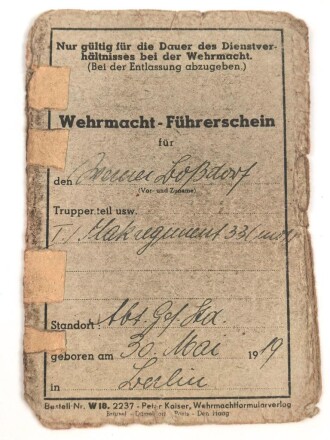 Nur gültig für die Dauer des Dienstver-
hältnisses bei der Wehrmacht.
(Bei der Entlassung abzugeben.)
Wehrmacht-Führerschein
für
den Werner Loßdorf
(Vor- und Zuname)
Truppenteil usw.
I./Flakregiment 33 (mot)
Standort: Abt. Gef. Std.
geboren am 30. Mai 1919
in Berlin
Bestell-Nr. W 18. 2237 - Peter Kaiser, Wehrmachtformularverlag
Paris - Den Haag